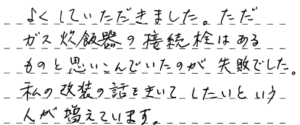 よくしていただきました。ただ
ガス炊飯器の接続栓はある
ものと思いこんでいたのが失敗でした。
私の改装の話をきいてしたいという
人が増えています。